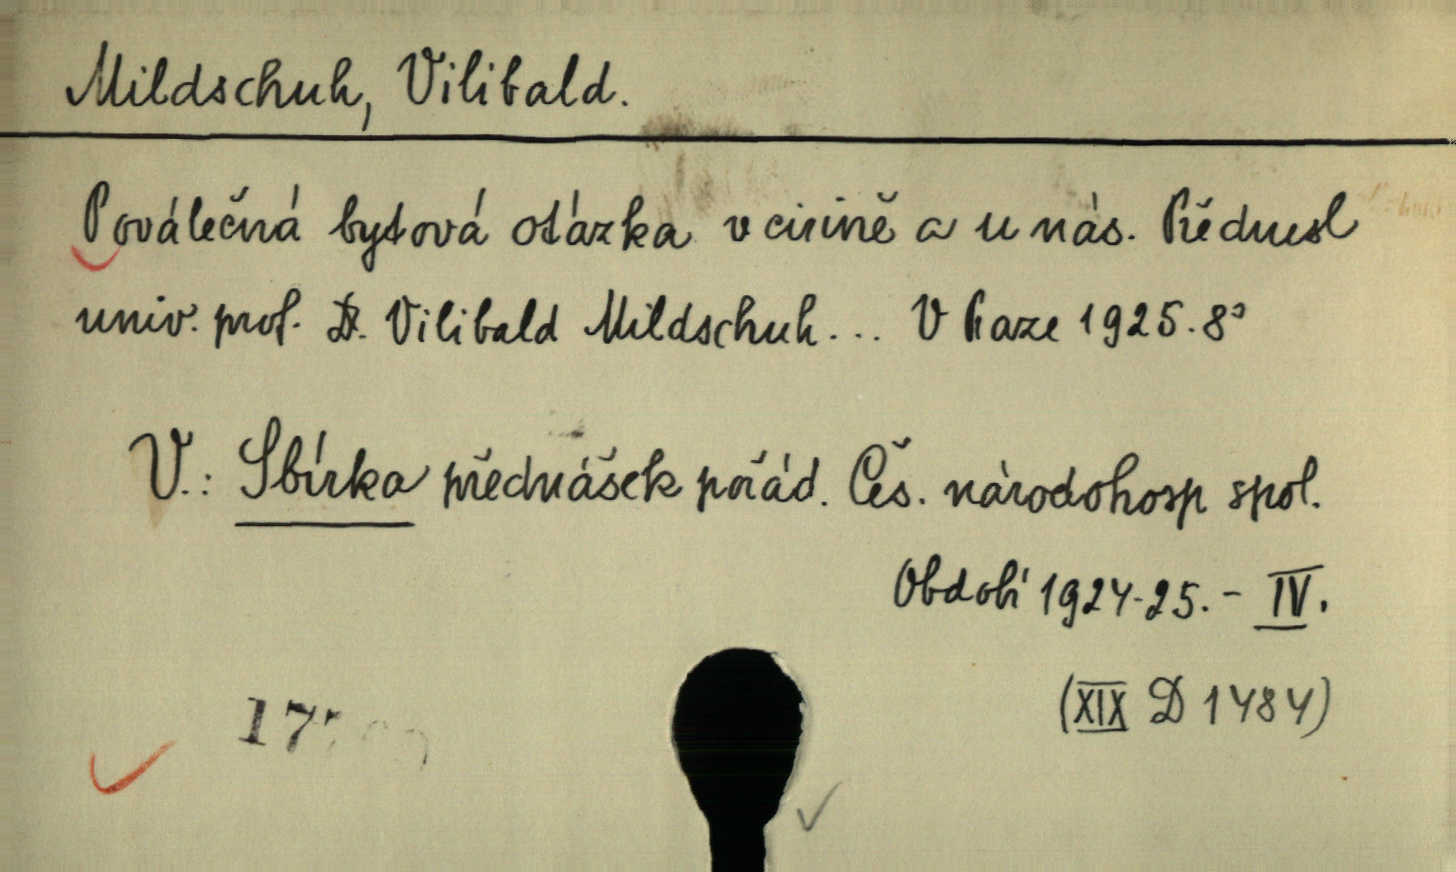 Mildschuh, Vilibald.
Poválečná bytová otázka v cizině a u nás. Přednesl
univ. prof. Dr. Vilibald Mildschuh... V Praze 1925. 8°
V.: Sbírka přednášek pořád. Čes. národohosp spol.
Období 1924-25. - IV.
(XIX D 1484)